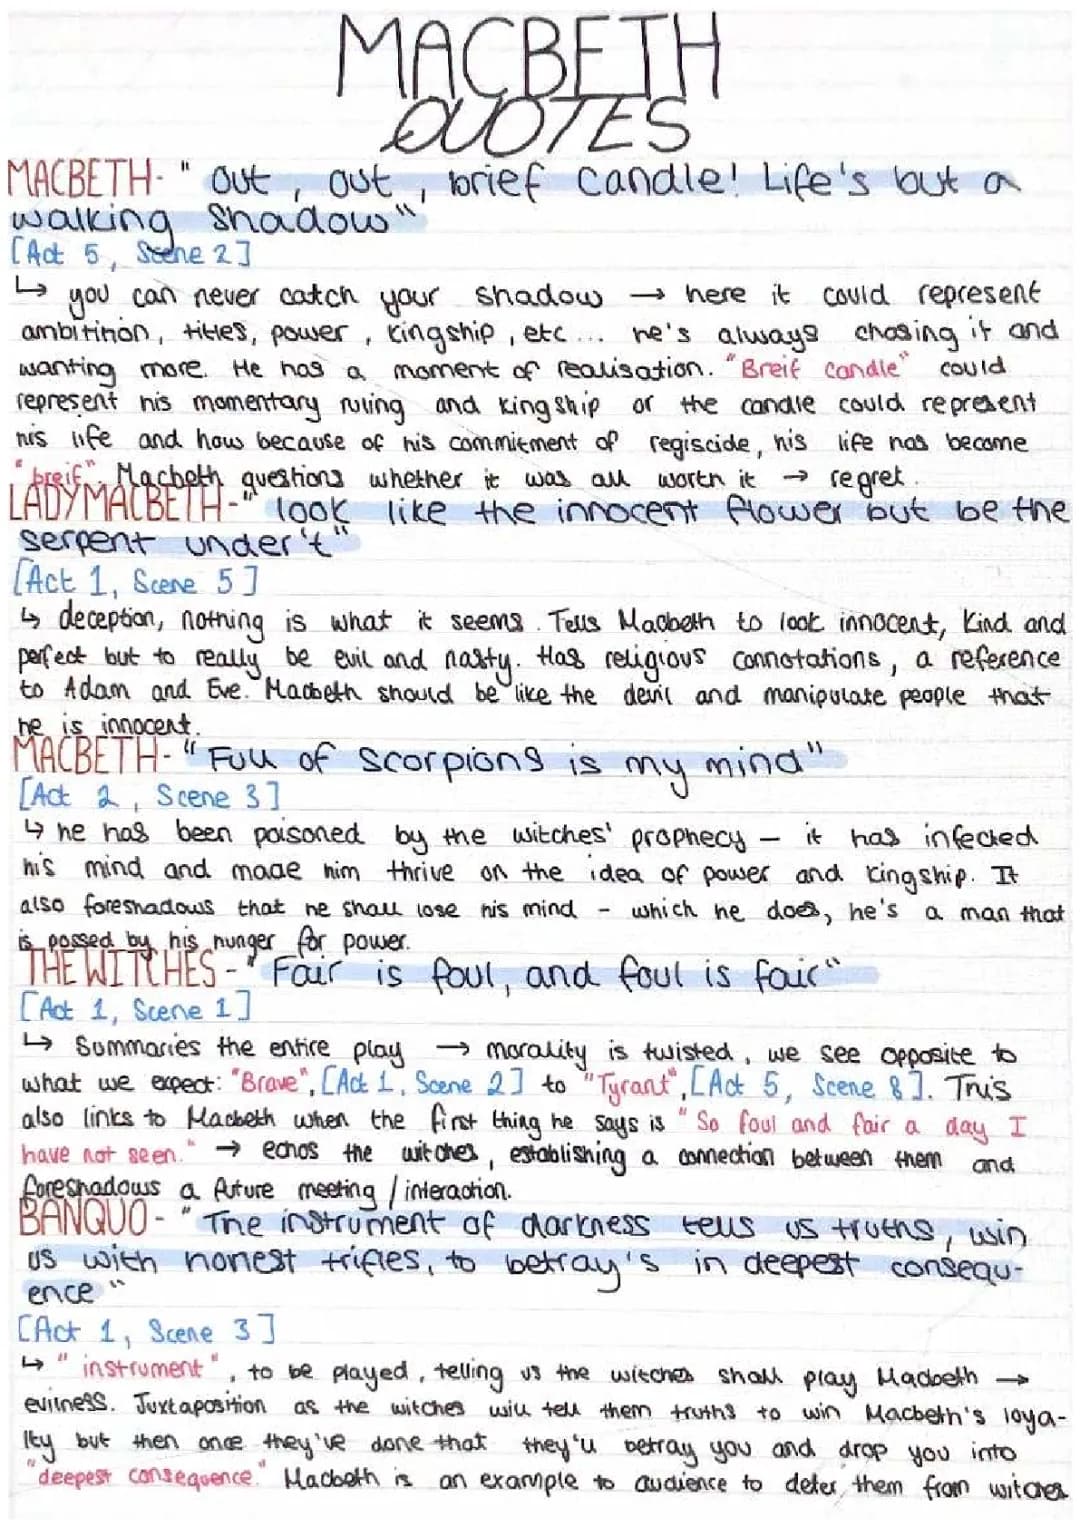 MACBETH
QUOTES
MACBETH- " Out, out, brief candle! Life's but a
walking shadow"
[Act 5, Scene 2]
↳ you can never catch your shadow → here it could represent
ambitinon, titles, power, kingship, etc... he's always chasing it and
wanting more. He has a moment of realisation. "Breif candle" could
represent his momentary ruling and kingship or the candle could represent
his life and how because of his commitment of regiscide, his life has become
"breif". Macbeth questions whether it was all worth it → regret.
LADY MACBETH- " look like the innocent flower but be the
serpent under't"
[Act 1, Scene 5]
↳ deception, nothing is what it seems. Tells Macbeth to look innocent, kind and
perfect but to really be evil and nasty. Has religious connotations, a reference
to Adam and Eve. Macbeth should be like the devil and manipulate people that
he is innocent.
MACBETH- " Full of scorpions is my mind"
[Act 2, Scene 3]
↳ he has been poisoned by the witches' prophecy – it has infected
his mind and made him thrive on the idea of power and kingship. It
also foreshadows that he shall lose his mind - which he does, he's a man that
is possed by his hunger for power.
THE WITCHES - " Fair is foul, and foul is fair"
[Act 1, Scene 1]
↳ Summaries the entire play → morality is twisted, we see opposite to
what we expect: "Brave", [Act 1, Scene 2] to "Tyrant", [Act 5, Scene 8]. This
also links to Macbeth when the first thing he says is "So foul and fair a day I
have not seen." → echos the witches, establishing a connection between them and
foreshadows a future meeting / interaction.
BANQUO- " The instrument of darkness tells us truths, win
us with honest trifles, to betray's in deepest consequ-
ence "
[Act 1, Scene 3]
↳ " instrument", to be played, telling us the witches shall play Macbeth →
evilness. Juxtaposition as the witches will tell them truths to win Macbeth's loya-
lty but then once they've done that they'll betray you and drop you into
"deepest consequence." Macbeth is an example to audience to deter them from witches